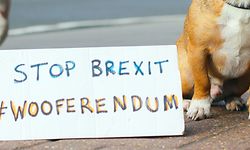 STOP BREXIT
#WOOFERENDUM